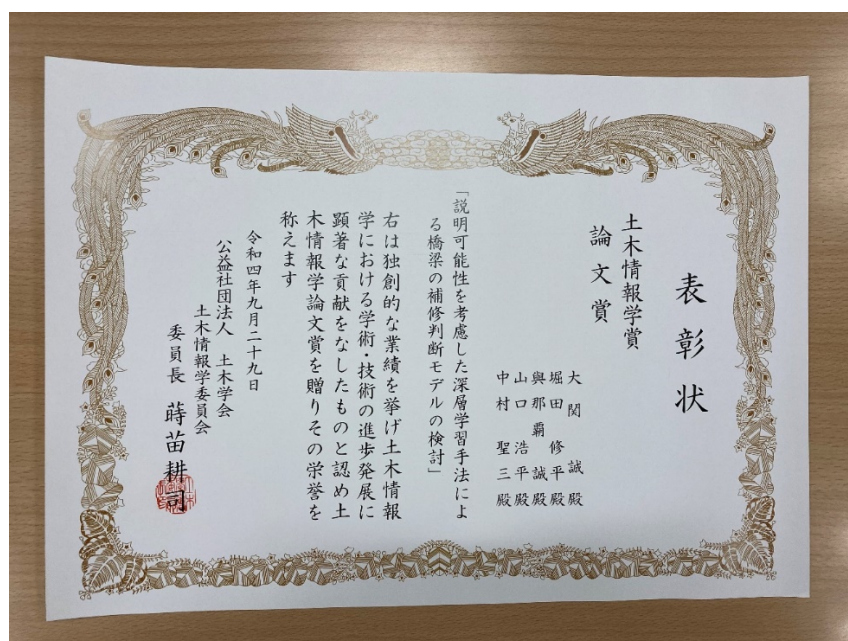 表彰状
土木情報学賞
論文賞
大関誠殿
堀田修平殿
與那覇誠殿
山口浩平殿
中村聖三殿
「説明可能性を考慮した深層学習手法によ
る橋梁の補修判断モデルの検討」
右は独創的な業績を挙げ土木情報
学における学術・技術の進歩発展に
顕著な貢献をなしたものと認め土
木情報学論文賞を贈りその栄誉を
称えます
令和四年九月二十九日
公益社団法人 土木学会
土木情報学委員会
委員長 蒔苗耕司